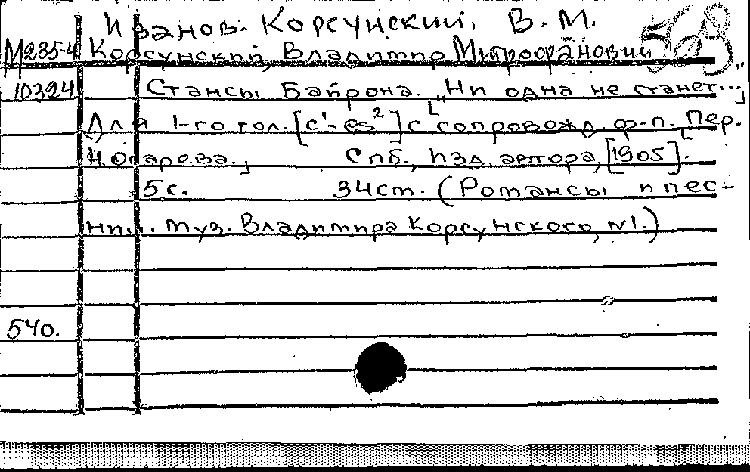 Иванов-Корсунский, В. М.
528
М235-4 Корсунский, Владимир Митрофанович
10324 Стансы Байрона. ["Ни одна не станет..."]
Для 1-го гол. [c'-es²] с сопровожд. ф-п. [Пер.
Н. Огарева.] Спб., Изд. автора, [1905].
5 с. 34 cm. (Романсы и пес-
ни. Муз. Владимира Корсунского, №1.)
540.